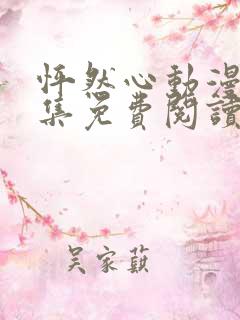 怦然心動漫
集免費閱讀
吴家蓺